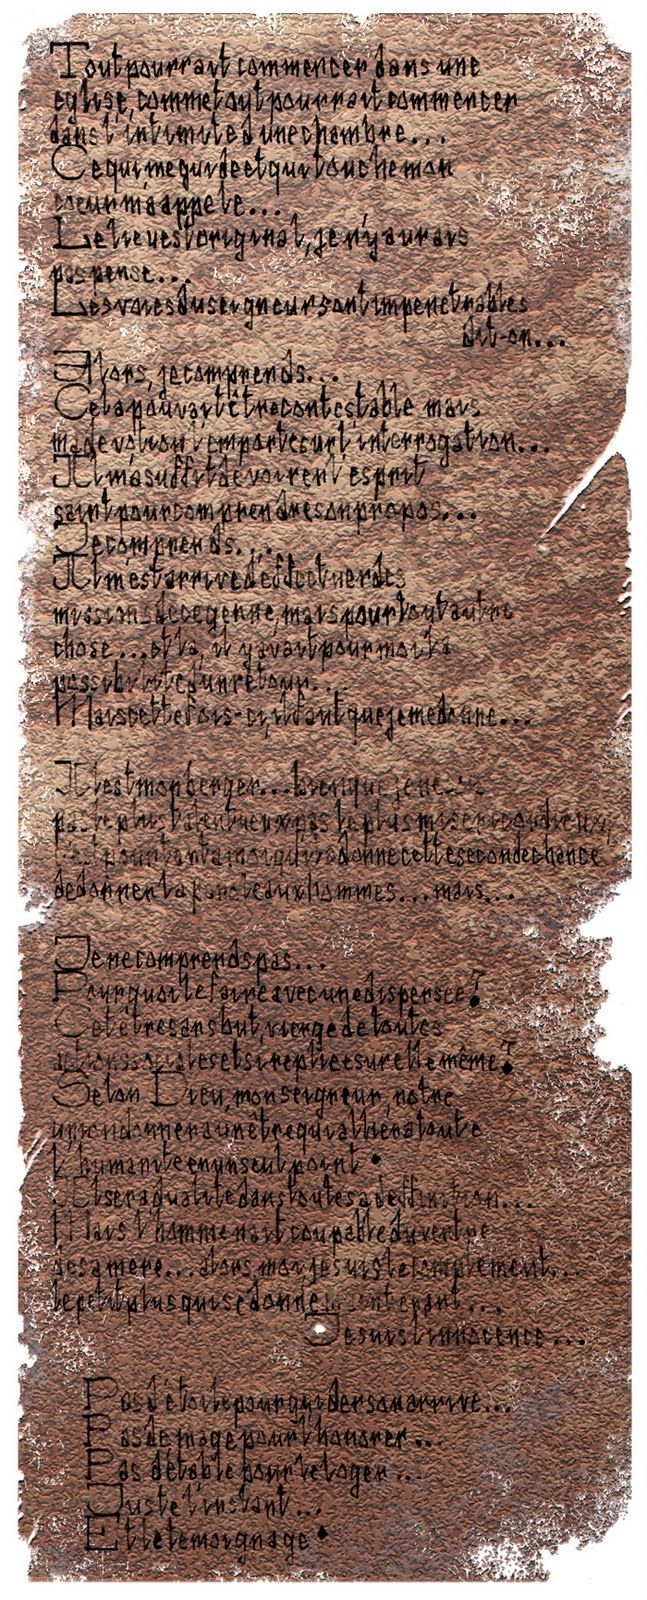 Tout pourrait commencer dans une
eglise, comme tout pourrait commencer
dans l'intimite d'une chambre...
Ce qui me guide et qui touche mon
coeur m'a appele...
Le lieu est original, je n'y aurais
pas pense...
Les voies du seigneur sont impenetrables
dit-on...
Alors, je comprends...
Cela pouvait être contestable mais
ma devotion l'emporte sur l'interrogation...
Il m'a suffit de voir en l'esprit
saint pour comprendre son propos...
Je comprends...
Il m'est arrive d'effectuer des
missions de ce genre, mais pour tout autre
chose... et la, il y avait pour moi la
possibilite d'un retour...
Mais cette fois-ci, il faut que je me donne...
Il est mon berger... bien que je ne
pas le plus talentueux pas le plus misericordieux,
c'est pourtant a moi qui a donne cette seconde chance
de donner la parole aux hommes... mais...
Je ne comprends pas...
Pourquoi le faire avec une dispersee?
Cet être sans but, vierge de toutes
actions sociales et si replie sur elle même?
Selon Dieu, mon seigneur, notre
union donnera un être qui alliera toute
l'humanite en un seul point.
Il sera dualite dans toute sa deffinition...
Mais l'homme nait coupable du ventre
de sa mere... alors, moi je suis le complement...
le petit plus qui se donne contenant...
Je suis l'innocence...
Pas d'etoile pour guider son arrive...
Pas de mage pour l'honorer...
Pas d'etable pour le loger...
Juste l'instant...
Et le temoignage.